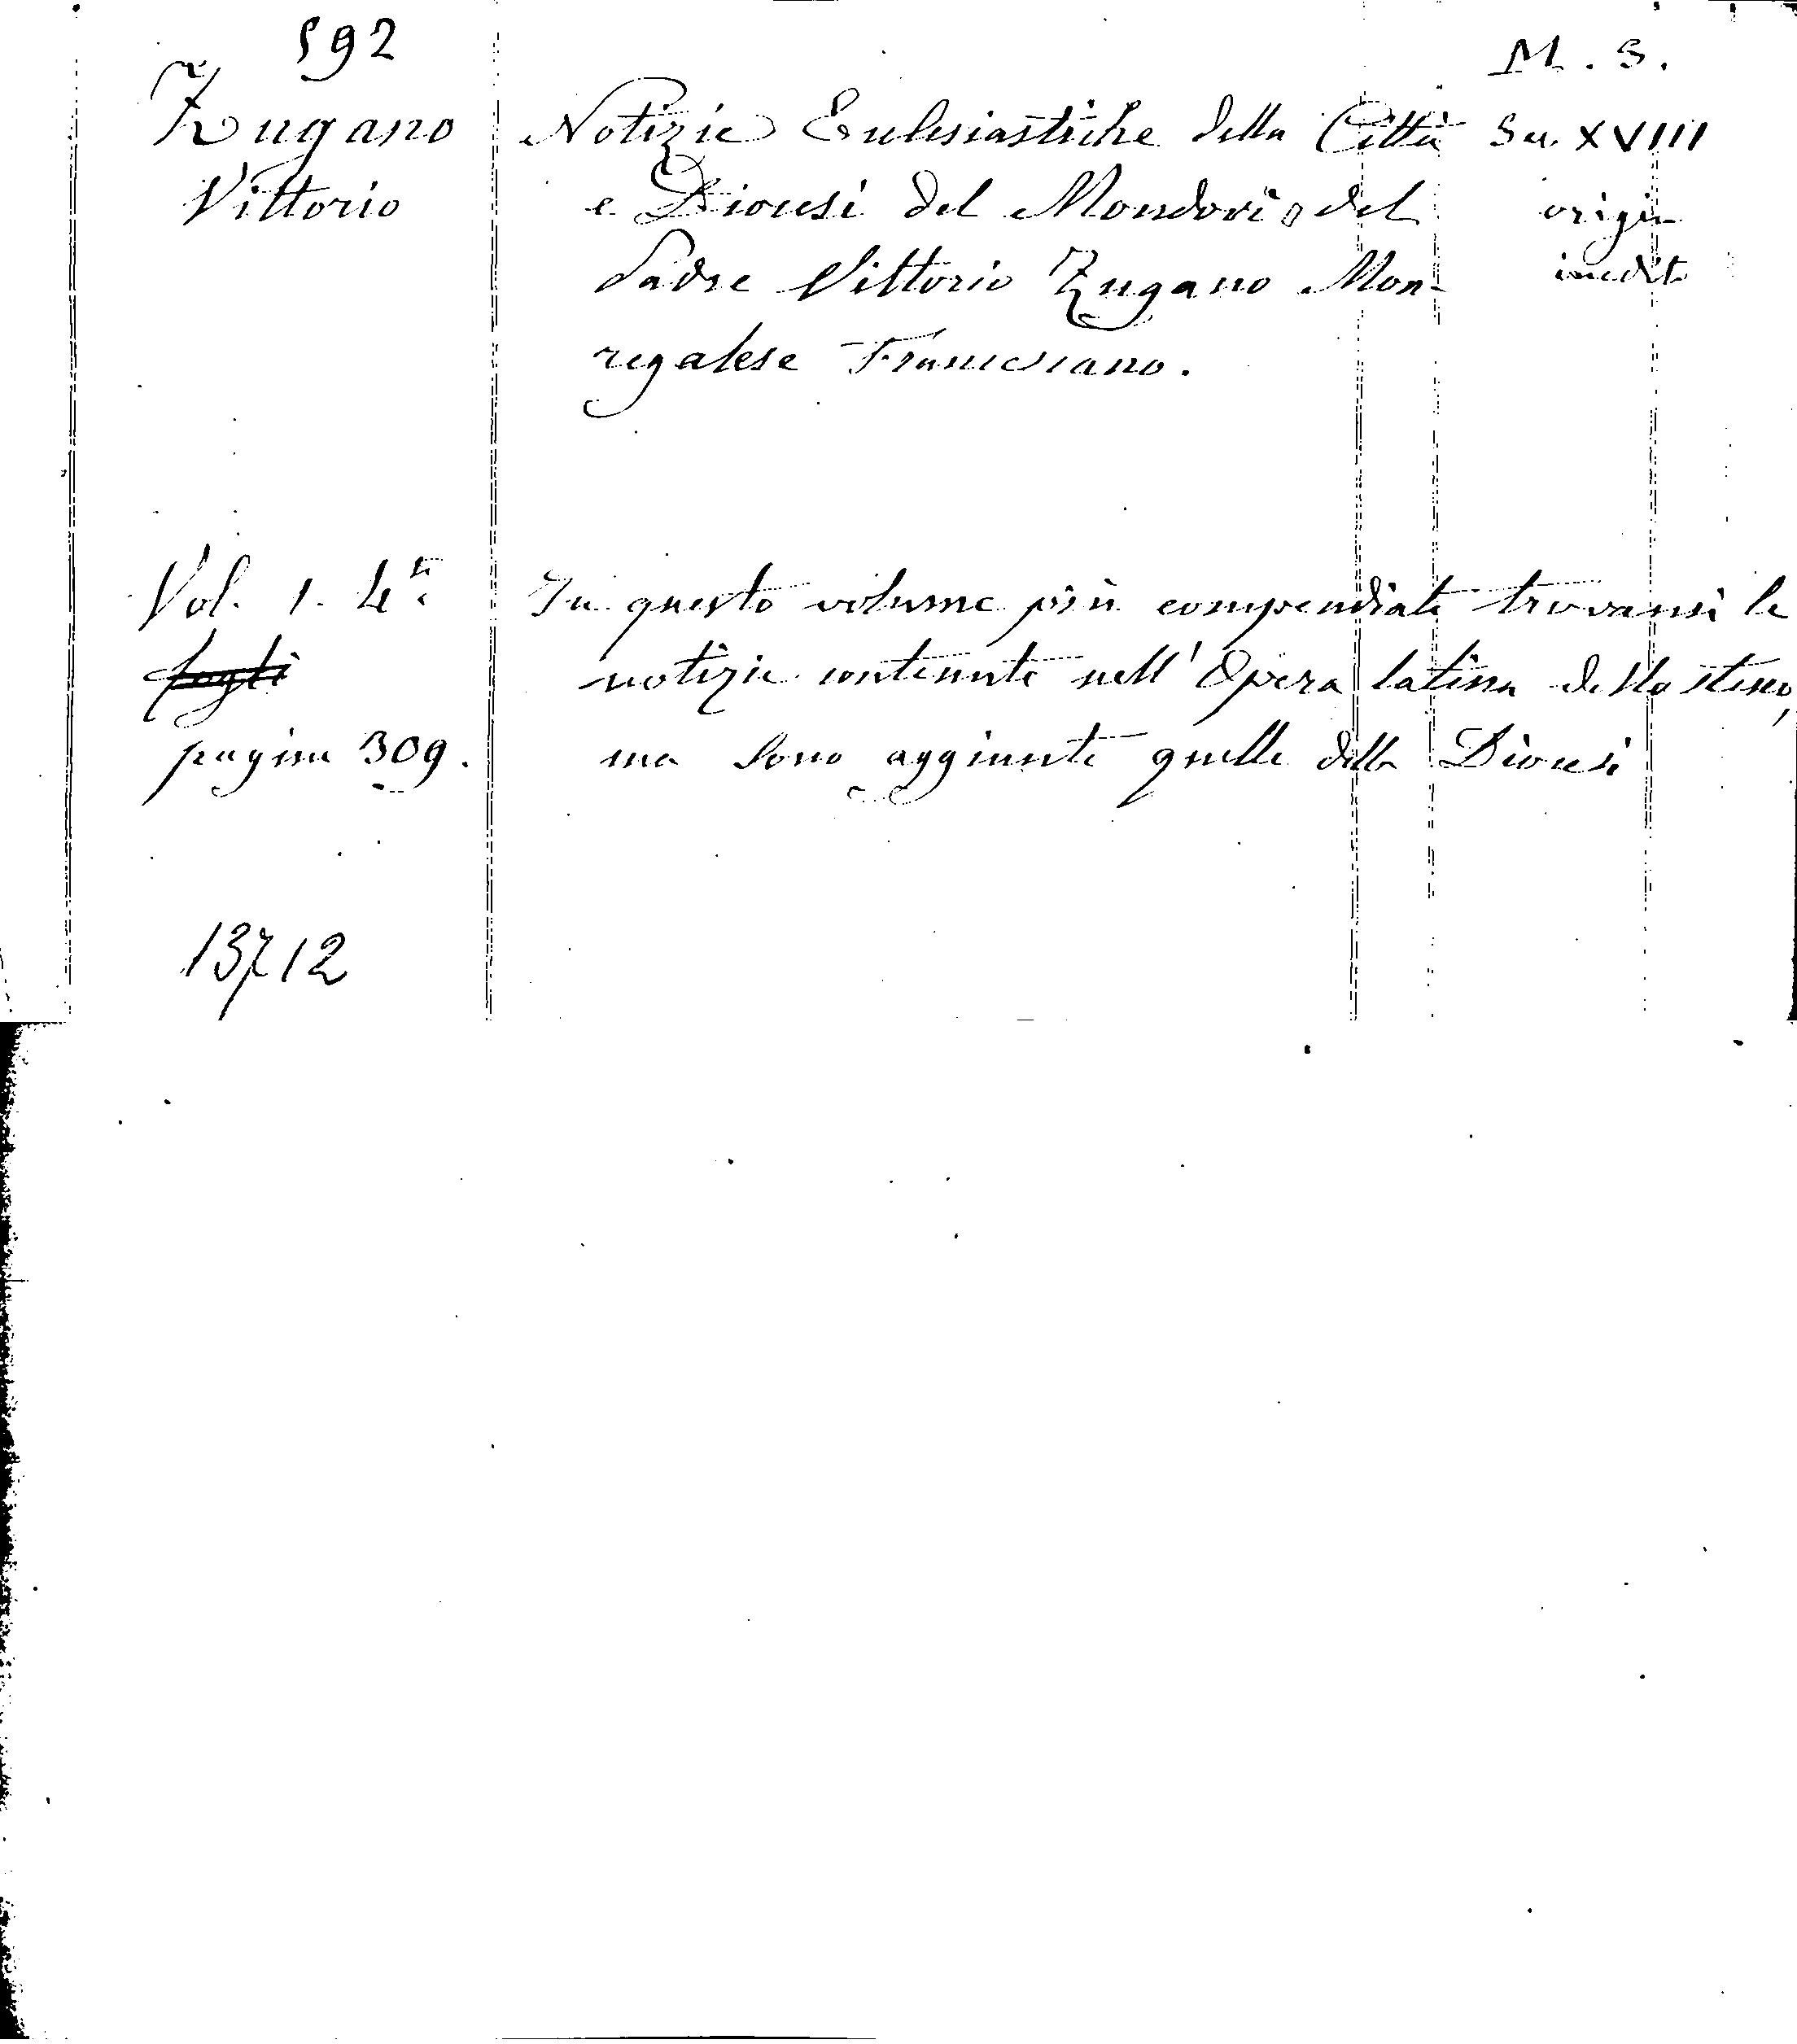 592
M. S.
Zugano Notizie Ecclesiastiche della Città Sec. XVIII
Vittorio e Diocesi del Mondovì del origin
Padre Vittorio Zugano Mon- inedito
regalese Francescano.
Vol. 1. 4to In questo volume più compendiate trovansi le
fogli notizie contenute nell'Opera latina dello stesso,
pagine 309. ma sono aggiunte quelle della Diocesi
13712